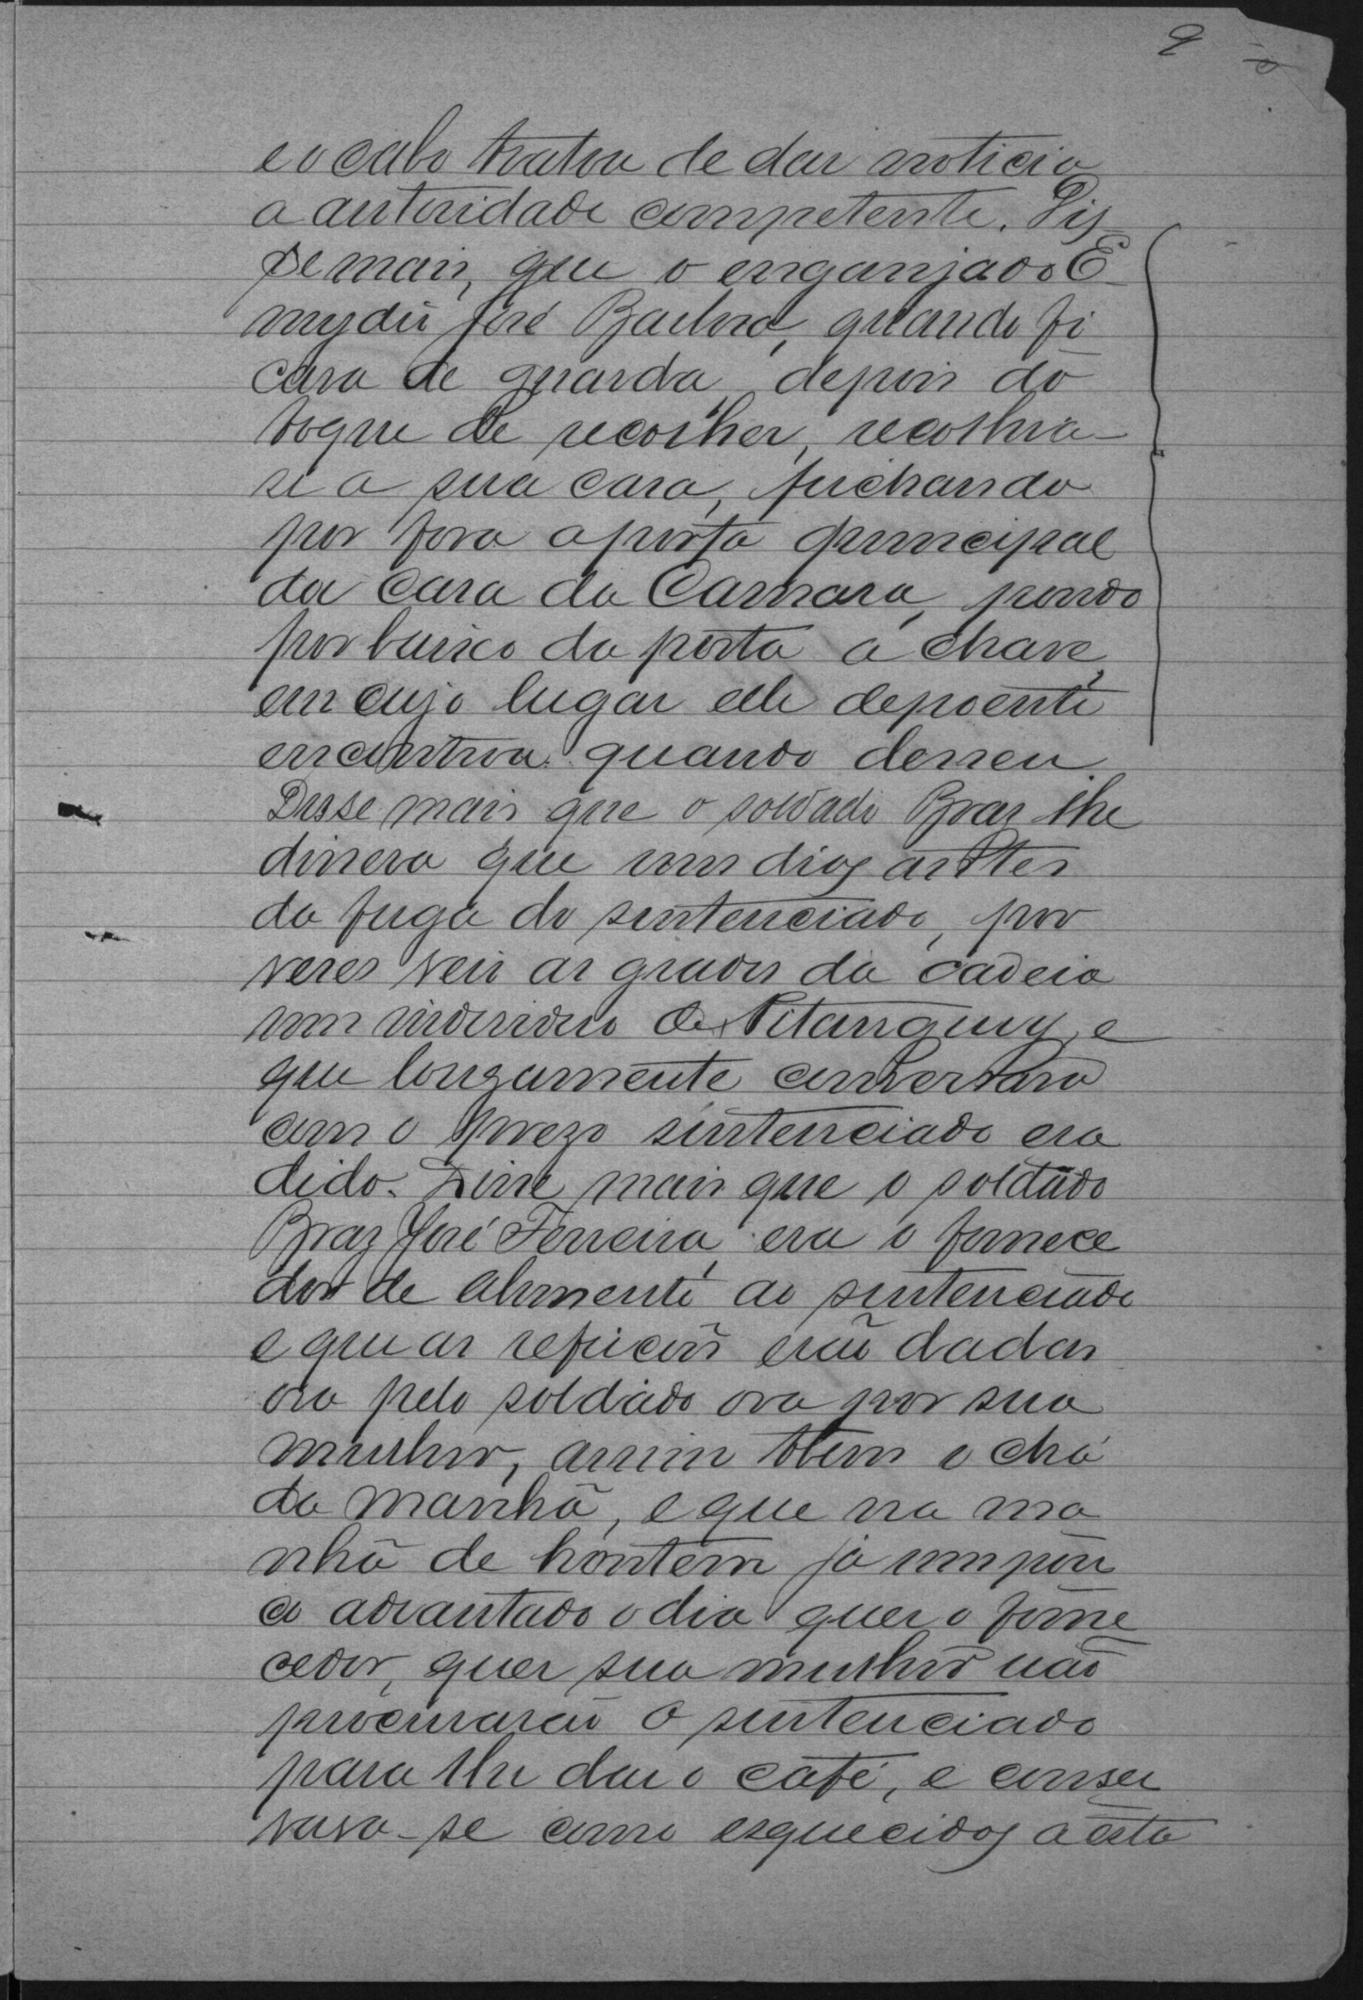 9
e o cabo tratou de dar noticia
a autoridade competente. Dis-
se mais, que o enganjado E-
mydio José Barbosa, quando fi
cava de guarda, depois do
toque de recolher, recolhia-
se a sua casa, fichando
por fora a porta principal
da Casa da Camara, pondo
por baixo da porta a chave,
em cujo lugar elle depoente
encontrou quando desceu
Disse mais que o soldado Braz lhe
dissera que uns dias antes
da fuga do sentenciado, por
vezes veio as grades da cadeia
um individuo de Pitanguy, e
que longamente conversara
com o prezo sentenciado eva
dido. Disse mais que o soldado
Braz José Ferreira, era o fornece
dor de alimento ao sentenciado
e que as refeicões erão dadas
ora pelo soldado ora por sua
mulher, assim tbem o chá
da manhã, e que na ma
nhã de hontem já um pou
co adiantado o dia quer o forne
cedor, quer sua mulher não
procurarão o sentenciado
para lhe dar o café, e conser
vava-se como esquecidos a esta